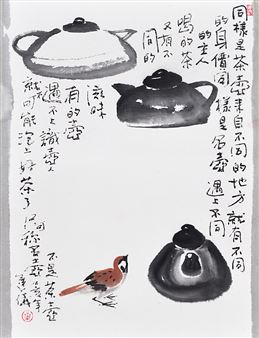 同樣是茶壺來自不同的地方就有不同
的身價同樣是名壺遇上不同
的主人
喝的茶
又有不
同的
滋味
有的壺
遇不上識壺人
就可能泡上好茶了
不是茶壺